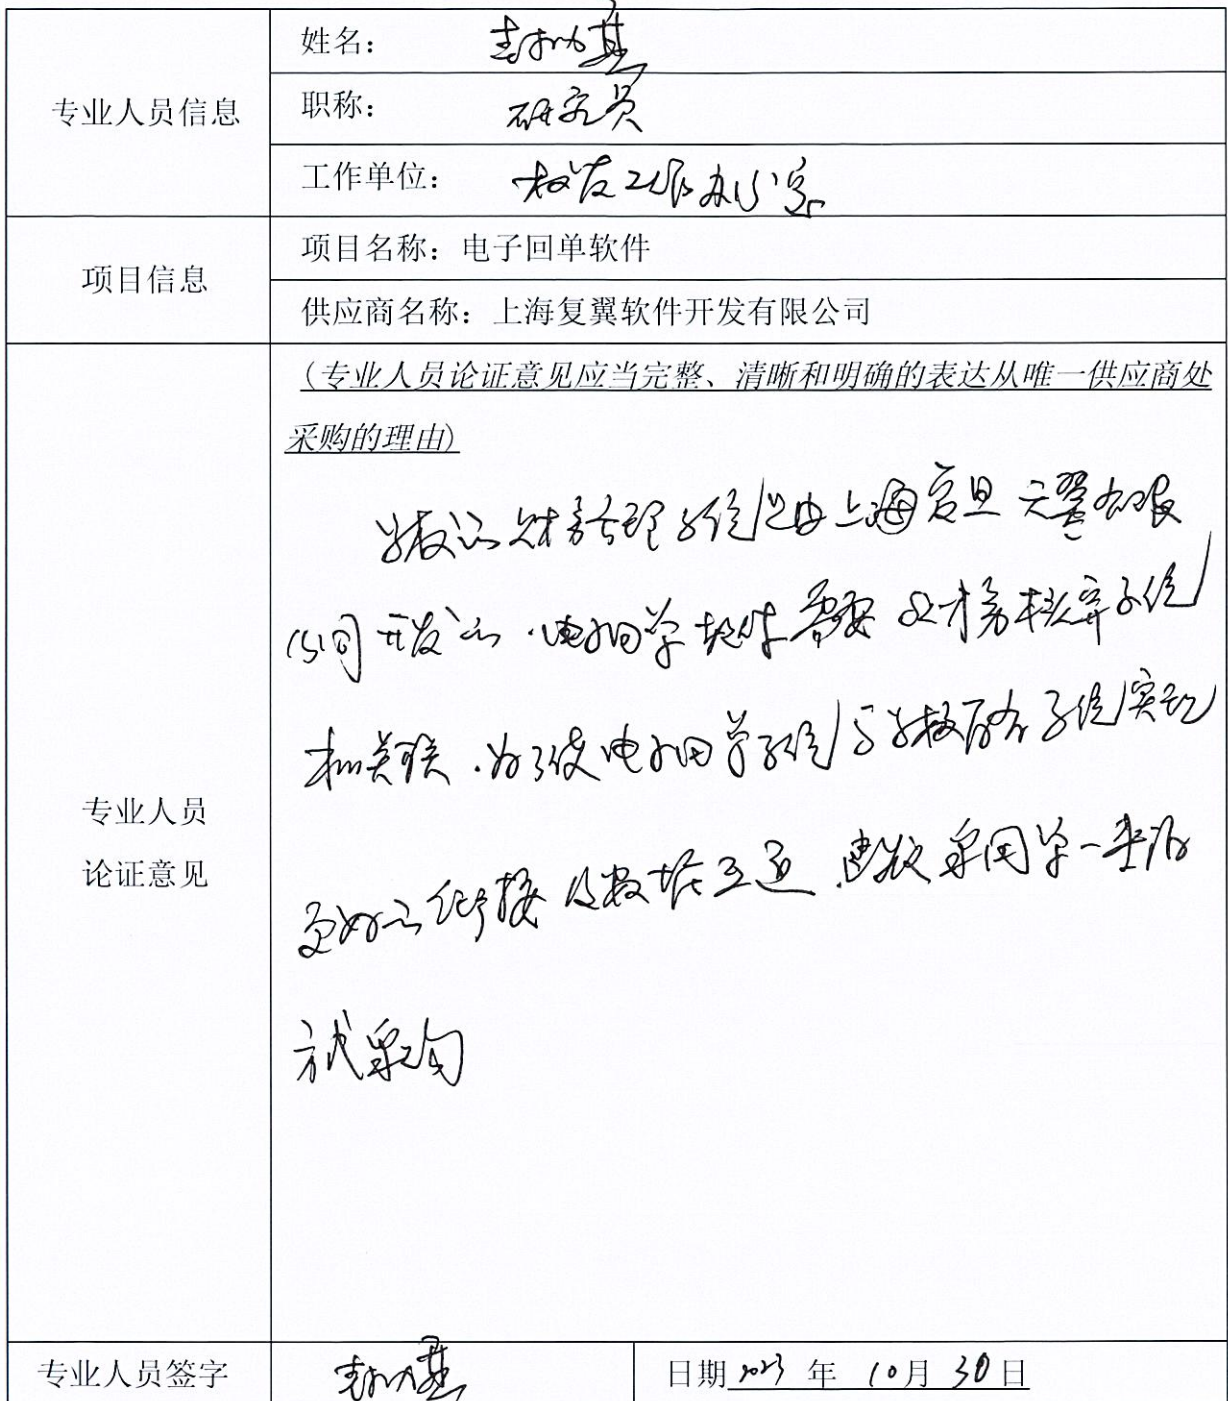 专业人员信息
姓名：
职称： 研究员
工作单位： 校友工作办公室
项目信息
项目名称：电子回单软件
供应商名称：上海复翼软件开发有限公司
专业人员
论证意见
（专业人员论证意见应当完整、清晰和明确的表达从唯一供应商处
采购的理由）
学校的财务管理系统是由上海复旦天翼有限
公司开发的，电子回单软件需要与财务核算系统
相关联，为了使电子回单系统与学校原有系统实现
更好的衔接及数据互通，建议采用单一来源
方式采购
专业人员签字
日期 2023 年 10月 30日